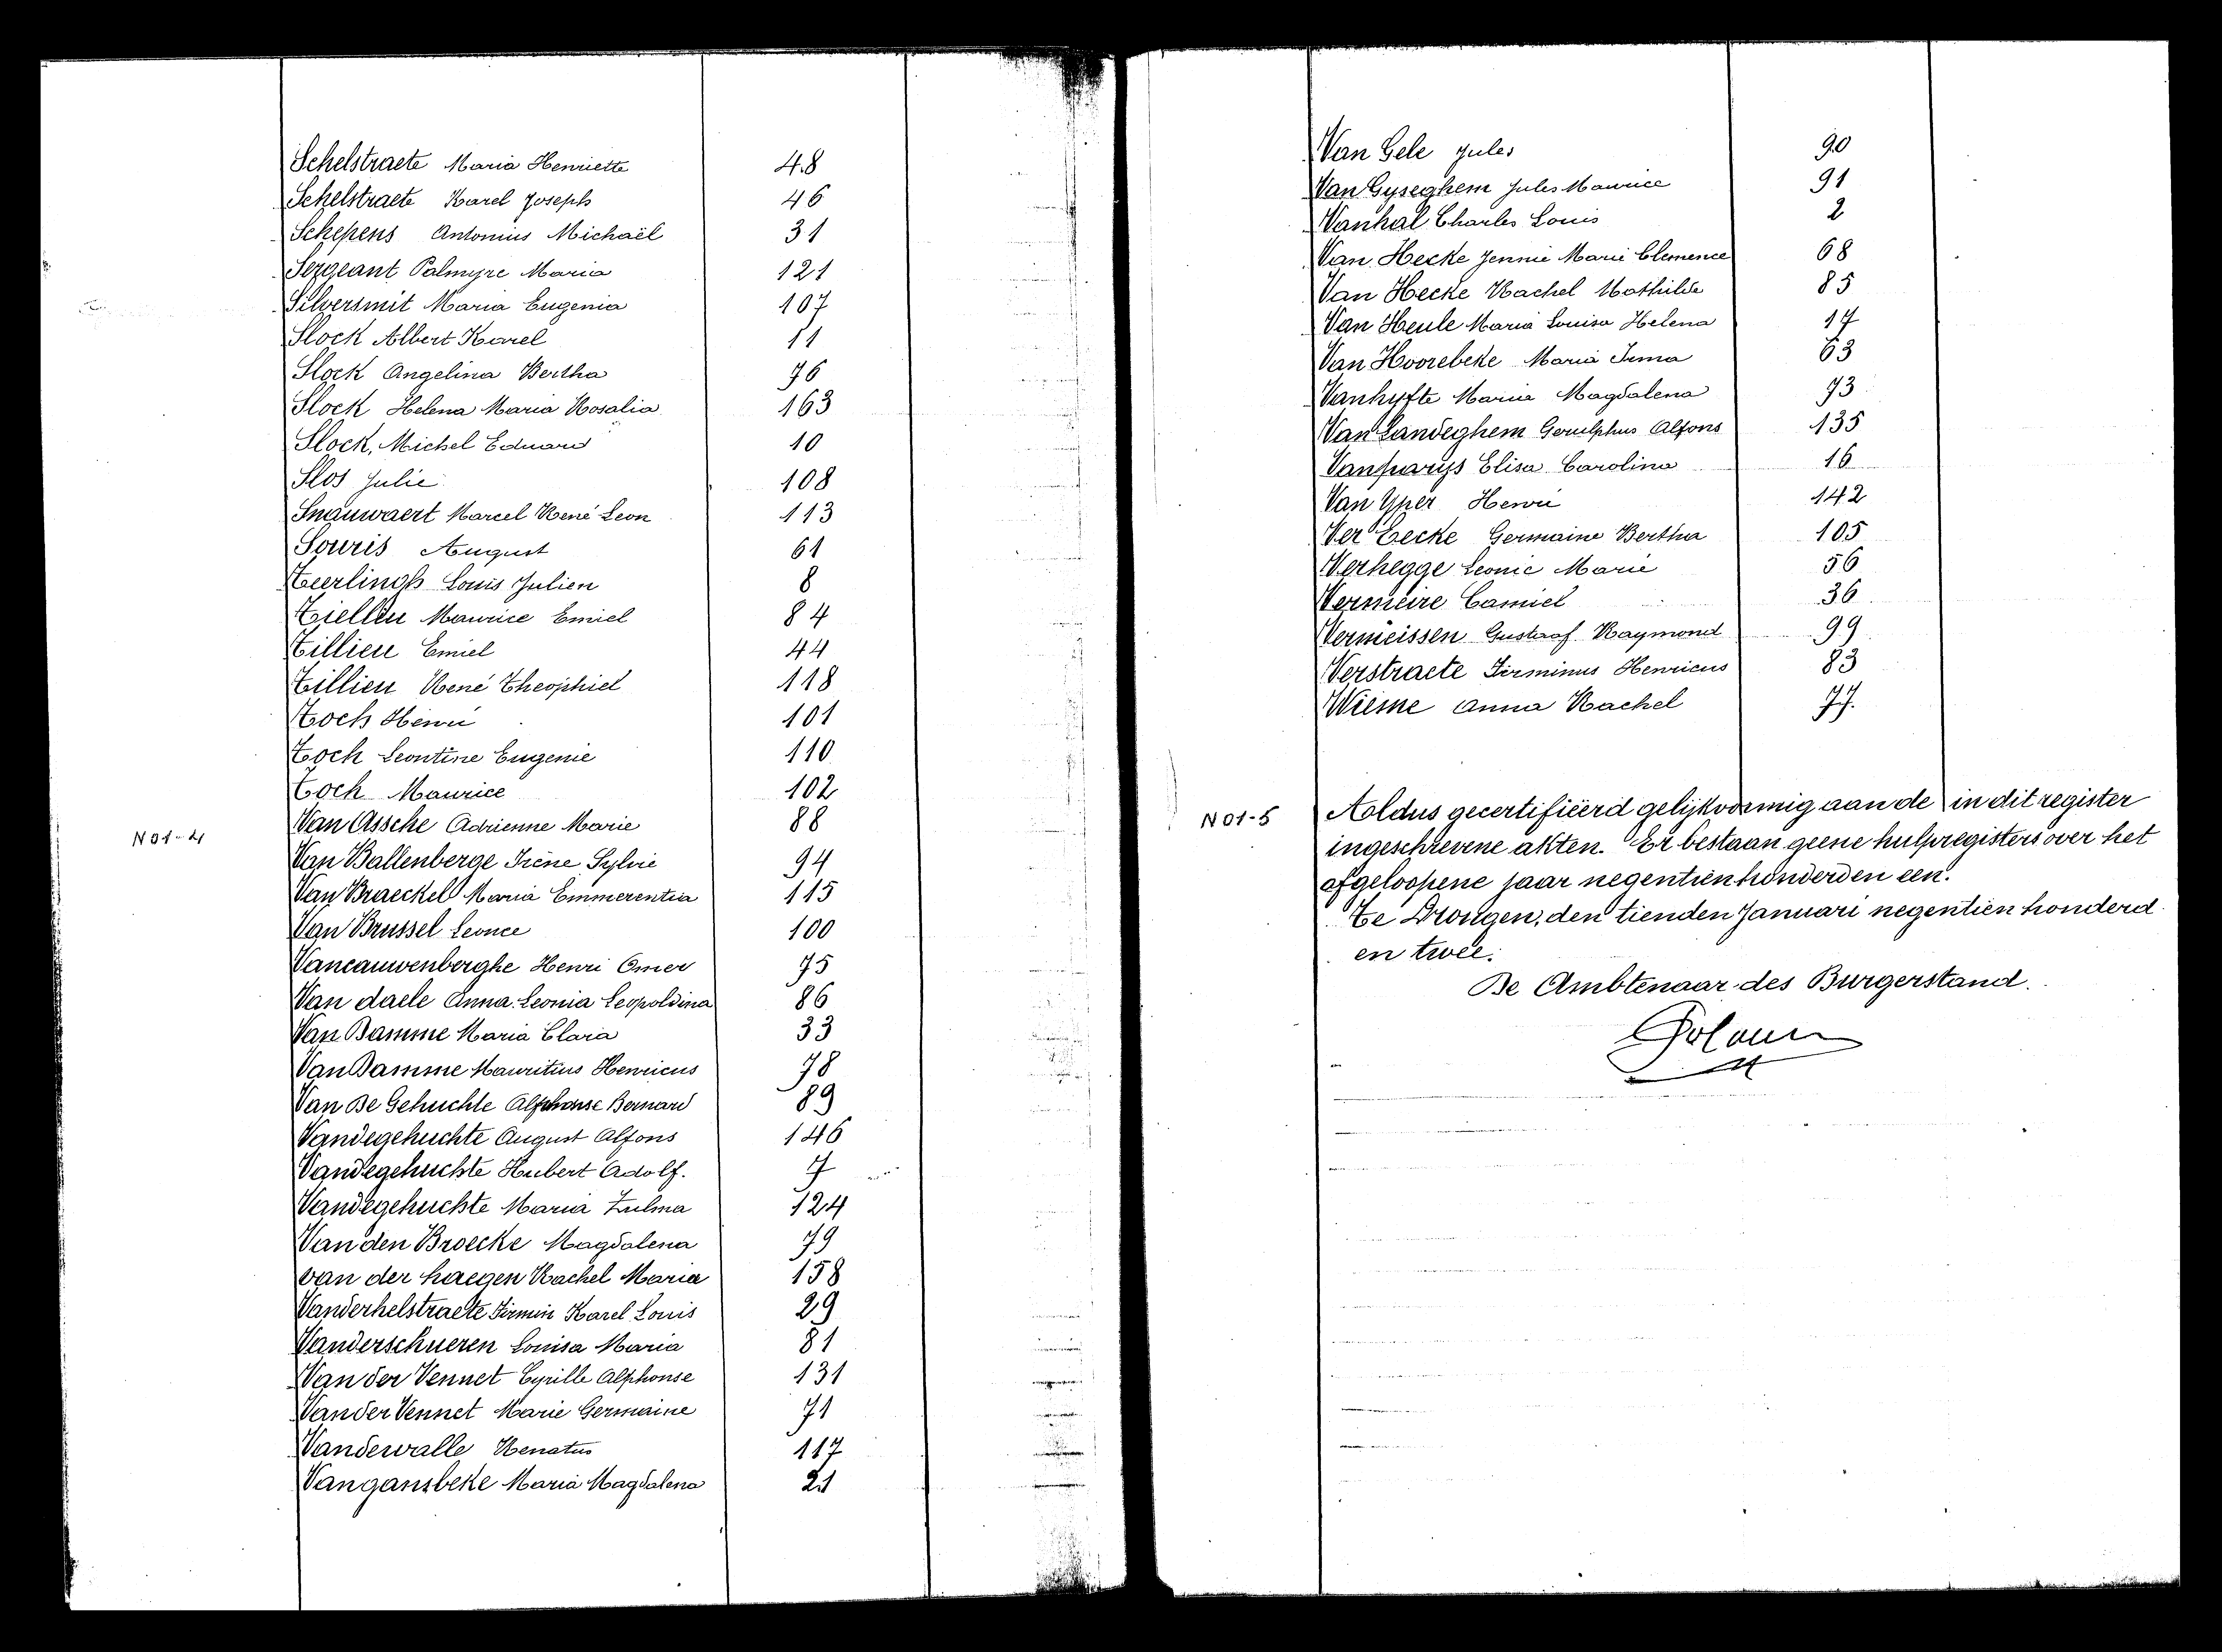 Schelstraete Maria Henriette 48
Schelstraete Karel Joseph 46
Schepens Antonius Michaël 31
Sergeant Palmyre Maria 121
Silversmit Maria Eugenia 107
Slock Albert Karel 11
Slock Angelina Bertha 76
Slock Helena Maria Rosalia 163
Slock, Michel Eduard 10
Slos Julie 108
Snauwaert Marcel René Leon 113
Souris August 61
Teerlinck Louis Julien 8
Tiellen Maurice Emiel 84
Tillieu Emiel 44
Tillieu René Theophiel 118
Toch Henri 101
Toch Leontine Eugenie 110
Toch Maurice 102
Van Assche Adrienne Marie 88
N01-4
Van Ballenberge Irène Sylvie 94
Van Braeckel Maria Emmerentia 115
Van Brussel Leonce 100
Vancauwenberghe Henri Omer 75
Van daele Anna Leonia Leopoldina 86
Van Damme Maria Clara 33
Van Damme Mauritius Henricus 78
Van De Gehuchte Alphonse Bernard 89
Vandegehuchte August Alfons 146
Vandegehuchte Hubert Adolf. 7
Vandegehuchte Maria Zulma 124
Van den Broecke Magdalena 79
van der haegen Rachel Maria 158
Vanderhelstraete Firmin Karel Louis 29
Vanderschueren Louisa Maria 81
Van der Vennet Cyrille Alphonse 131
Van der Vennet Marie Germaine 71
Vandewalle Renatus 117
Vangansbeke Maria Magdalena 21
Van Gele Jules 90
Van Gyseghem Jules Maurice 91
Vanhal Charles Louis 2
Van Hecke Jennie Marie Clemence 68
Van Hecke Rachel Mathilde 85
Van Heule Maria Louisa Helena 17
Van Hoorebeke Maria Irma 63
Vanhyfte Maria Magdalena 73
Van Landeghem Gerulphus Alfons 135
Vanparys Elisa Carolina 16
Van Yper Henri 142
Ver Eecke Germaine Bertha 105
Verhegge Leonie Marie 56
Vermeire Camiel 36
Vermeissen Gustaaf Raymond 99
Verstraete Firminus Henricus 83
Wieme Anna Rachel 77.
N01-5
Aldus gecertifiëerd gelijkvormig aan de in dit register
ingeschrevene akten. Er bestaan geene hulpregisters over het
afgeloopene jaar negentienhonderd en een.
Te Drongen, den tienden Januari negentien honderd
en twee.
De Ambtenaar des Burgerstand.